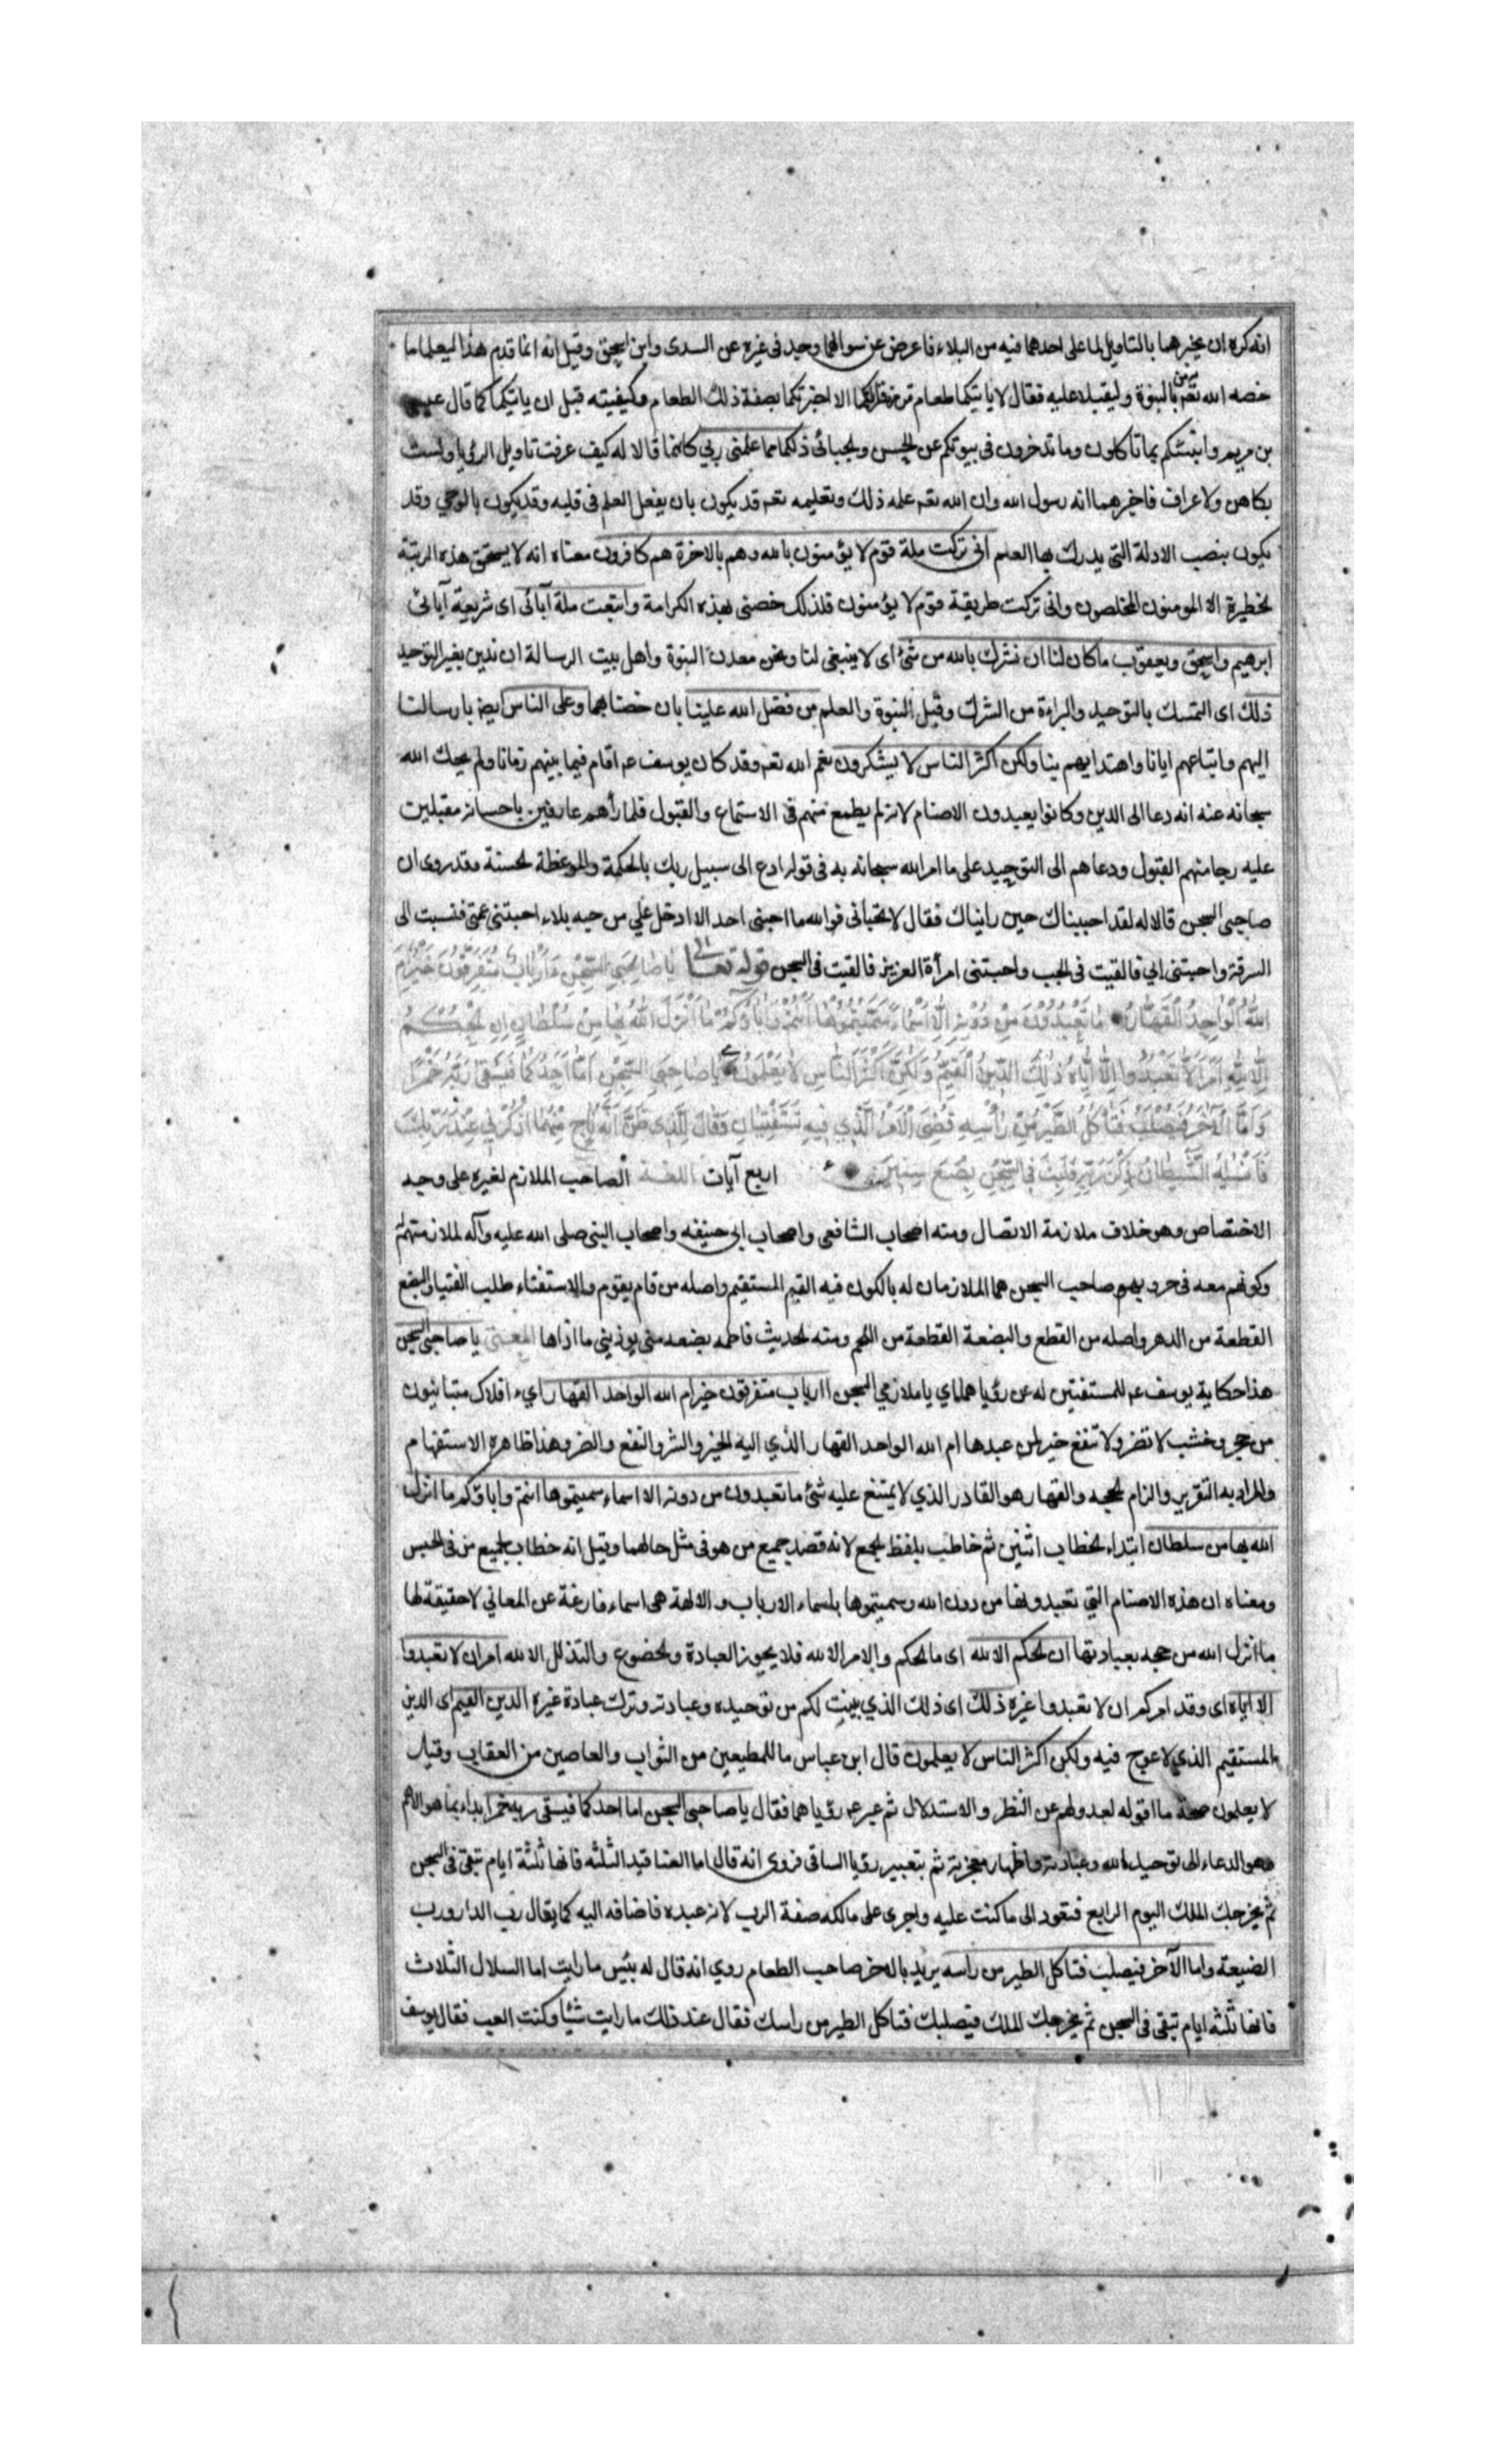 انه كره ان يخبرهما بالتاويل لما على احدهما فيه من البلاء فاعرض عن سوالهما وحيد في غيره عن السدى وابن اسحق وقيل انه انما قدم هذا ليعلما ما
خصه الله تعه به من بالنبوة وليقبلا عليه فقال لا ياتيكما طعام ترزقانه الا اخبرتكما بصفة ذلك الطعام وكيفيته قبل ان ياتيكما كما قال عيسى
بن مريم وانبئكم بما تاكلون وما تدخرون في بيوتكم عن الحسن والجبائى ذلكما مما علمنى ربي كانما قالا له كيف عرفت تاويل الرؤيا ولست
بكاهن ولا عراف فاخبرهما انه رسول الله وان الله تعه علمه ذلك وتعليمه تعه قد يكون بان يفعل العلم فى قلبه وقد يكون بالوحي وقد
يكون بنصب الادلة التي يدرك بها العلم انى تركت ملة قوم لا يؤمنون بالله وهم بالاخرة هم كافرون معناه انه لا يستحق هذه الرتبة
الخطيرة الا المومنون المخلصون وانى تركت طريقة قوم لا يؤمنون فلذلك خصنى بهذه الكرامة واتبعت ملة آبائى اى شريعة آبائى
ابرهيم واسحق ويعقوب ما كان لنا ان نشرك بالله من شئ اى لا ينبغى لنا ونحن معدن النبوة واهل بيت الرسالة ان ندين بغير التوحيد
ذلك اى التمسك بالتوحيد والبراءة من الشرك وقيل النبوة والعلم من فضل الله علينا بان خصنا بهما وعلى الناس ايضا بارسالنا
اليهم واتباعهم ايانا واهتدايهم بنا ولكن اكثر الناس لا يشكرون نعم الله تعه وقد كان يوسف عه اقام فيما بينهم زمانا ولم يحك الله
سبحانه عنه انه دعا الى الدين وكانوا يعبدون الاصنام لانه لم يطمع منهم فى الاستماع والقبول فلما رأهم عارفين باحسانه مقبلين
عليه رجا منهم القبول ودعاهم الى التوحيد على ما امر الله سبحانه به فى قوله ادع الى سبيل ربك بالحكمة والموعظة الحسنة وقد روى ان
صاحبى السجن قالا له لقد احببناك حين رايناك فقال لا تحبانى فوالله ما احبنى احد الا ادخل علي من حبه بلاء احبتنى عمتى فنسبت الى
السرقة واحبتنى ابي فالقيت فى الجب واحبتنى امرأة العزيز فالقيت فى السجن قوله تعالى يا صاحبي السجن ءارباب متفرقون خير ام
الله الواحد القهار ما تعبدون من دونه الا اسماء سميتموها انتم واباؤكم ما انزل الله بها من سلطان ان الحكم
الا لله امر الا تعبدوا الا اياه ذلك الدين القيم ولكن اكثر الناس لا يعلمون يا صاحبى السجن اما احدكما فيسقى ربه خمرا
واما الاخر فيصلب فتاكل الطير من رأسه قضى الامر الذي فيه تستفتيان وقال للذى ظن انه ناج منهما اذكرني عند ربك
فانسيه الشيطان ذكر ربه فلبث فى السجن بضع سنين اربع آيات اللغـة الصاحب الملازم لغيره على وجه
الاختصاص وهو خلاف ملازمة الاتصال ومنه اصحاب الشافعى واصحاب ابى حنيفه واصحاب النبى صلى الله عليه وآله لملازمتهم له
وكونهم معه فى حروبهم صاحب السجن هما الملازمان له بالكون فيه القيم المستقيم واصله من قام يقوم والاستفتاء طلب الفتيا والبضع
القطعة من الدهر واصله من القطع والبضعة القطعة من اللحم ومنه الحديث فاطمه بضعه منى يوذينى ما اذاها المعنى يا صاحبى السجن
هذا حكاية يوسف عه للمستفتيين له عن رؤياهما اي يا ملازمي السجن اارباب متفرقون خير ام الله الواحد القهار اي افلاك متباينون
من حجر وخشب لا تضر ولا تنفع خير لمن عبدها ام الله الواحد القهار الذي اليه الخير والشر والنفع والضر وهذا ظاهره الاستفهام
والمراد به التقرير والزام الحجه والقهار هو القادر الذي لا يمتنع عليه شئ ما تعبدون من دونه الا اسماء سميتموها انتم واباؤكم ما انزل
الله بها من سلطان ابتداء الخطاب اثنين ثم خاطب بلفظ الجمع لانه قصد جميع من هو فى مثل حالهما وقيل انه خطاب لجميع من فى الحبس
ومعناه ان هذه الاصنام التي تعبدونها من دون الله وسميتموها باسماء الارباب والالهة هى اسماء فارغة عن المعاني لا حقيقة لها
ما انزل الله من حجه بعبادتها ان الحكم الا لله اى ما الحكم والامر الا لله فلا يجوز العبادة والخضوع والتذلل الا لله امر ان لا تعبدوا
الا اياه اى وقد امركم ان لا تعبدوا غيره ذلك اى ذلك الذي بينت لكم من توحيده وعبادته وترك عبادة غيره الدين القيم اى الدين
المستقيم الذي لا عوج فيه ولكن اكثر الناس لا يعلمون قال ابن عباس ما للمطيعين من الثواب والعاصين من العقاب وقيل
لا يعلمون صحة ما اقوله لعدولهم عن النظر والاستدلال ثم عبر عه رؤياهما فقال يا صاحبى السجن اما احدكما فيسقى ربه خمرا بداء بما هو الاهم
وهو الدعاء الى توحيد الله وعبادته واظهار معجزته ثم بتعبير رؤيا الساقى فروى انه قال اما العناقيد الثلثه فانها ثلثة ايام تبقى فى السجن
ثم يخرجك الملك اليوم الرابع فتعود الى ما كنت عليه واجرى على مالكه صفة الرب لانه عبده فاضافه اليه كما يقال رب الدار ورب
الضيعة واما الآخر فيصلب فتاكل الطير من راسه يريد بالاخر صاحب الطعام روي انه قال له بئس ما رايت اما السلال الثلاث
فانها ثلثه ايام تبقى فى السجن ثم يخرجك الملك فيصلبك فتاكل الطير من راسك فقال عند ذلك ما رايت شيئا وكنت العب فقال يوسف